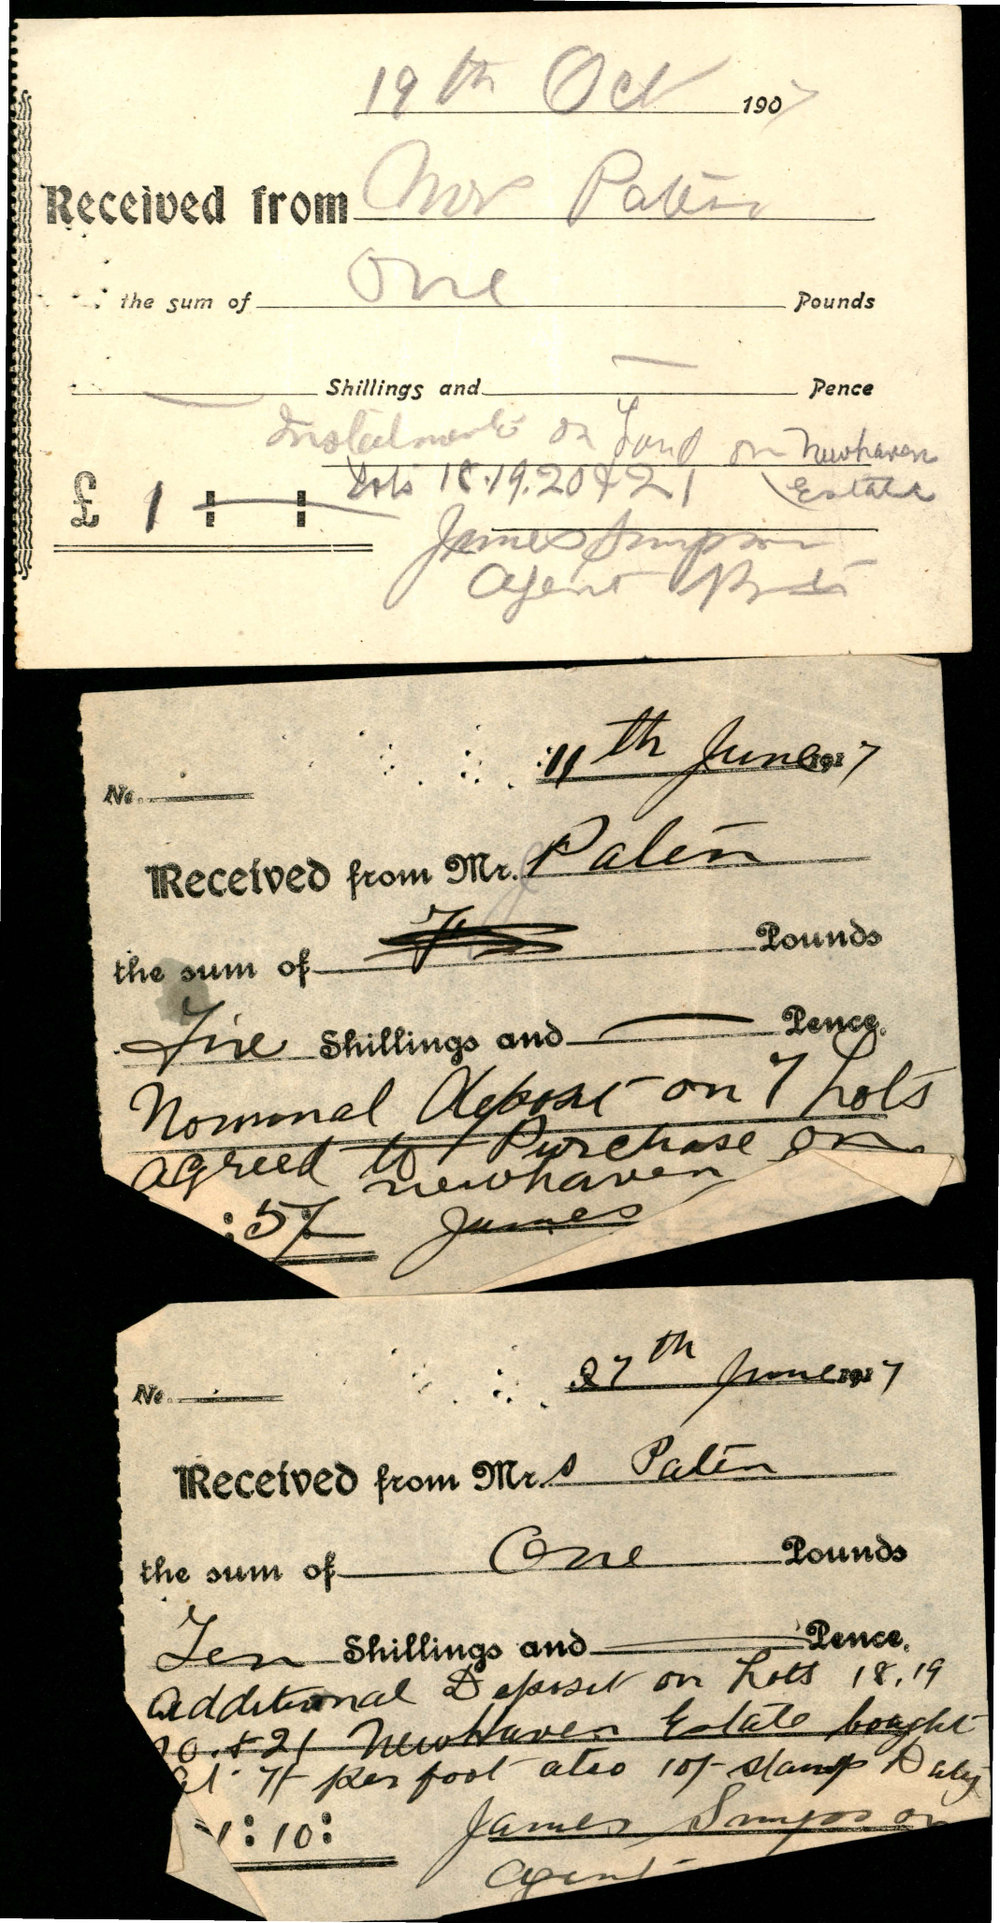 19th Oct 1907
Received from Mrs Paten
the sum of One Pounds
— Shillings and — Pence
Instalment on Land on Newhaven
Lots 18.19.20 & 21 Estate
£ 1 : — :
James Simpson
Agent
No. 11th June 1917
Received from Mr. Paten
the sum of Pounds
Five Shillings and — Pence.
Nominal Deposit on 7 Lots
agreed to Purchase on
newhaven
: 5/: James
No. 27th June 1917
Received from Mrs Paten
the sum of One Pounds
Ten Shillings and — Pence.
additional Deposit on Lots 18.19
20. & 21 Newhaven Estate bought
at 7/- per foot also 10/- stamp Duty
1 : 10 : James Simpson
agent